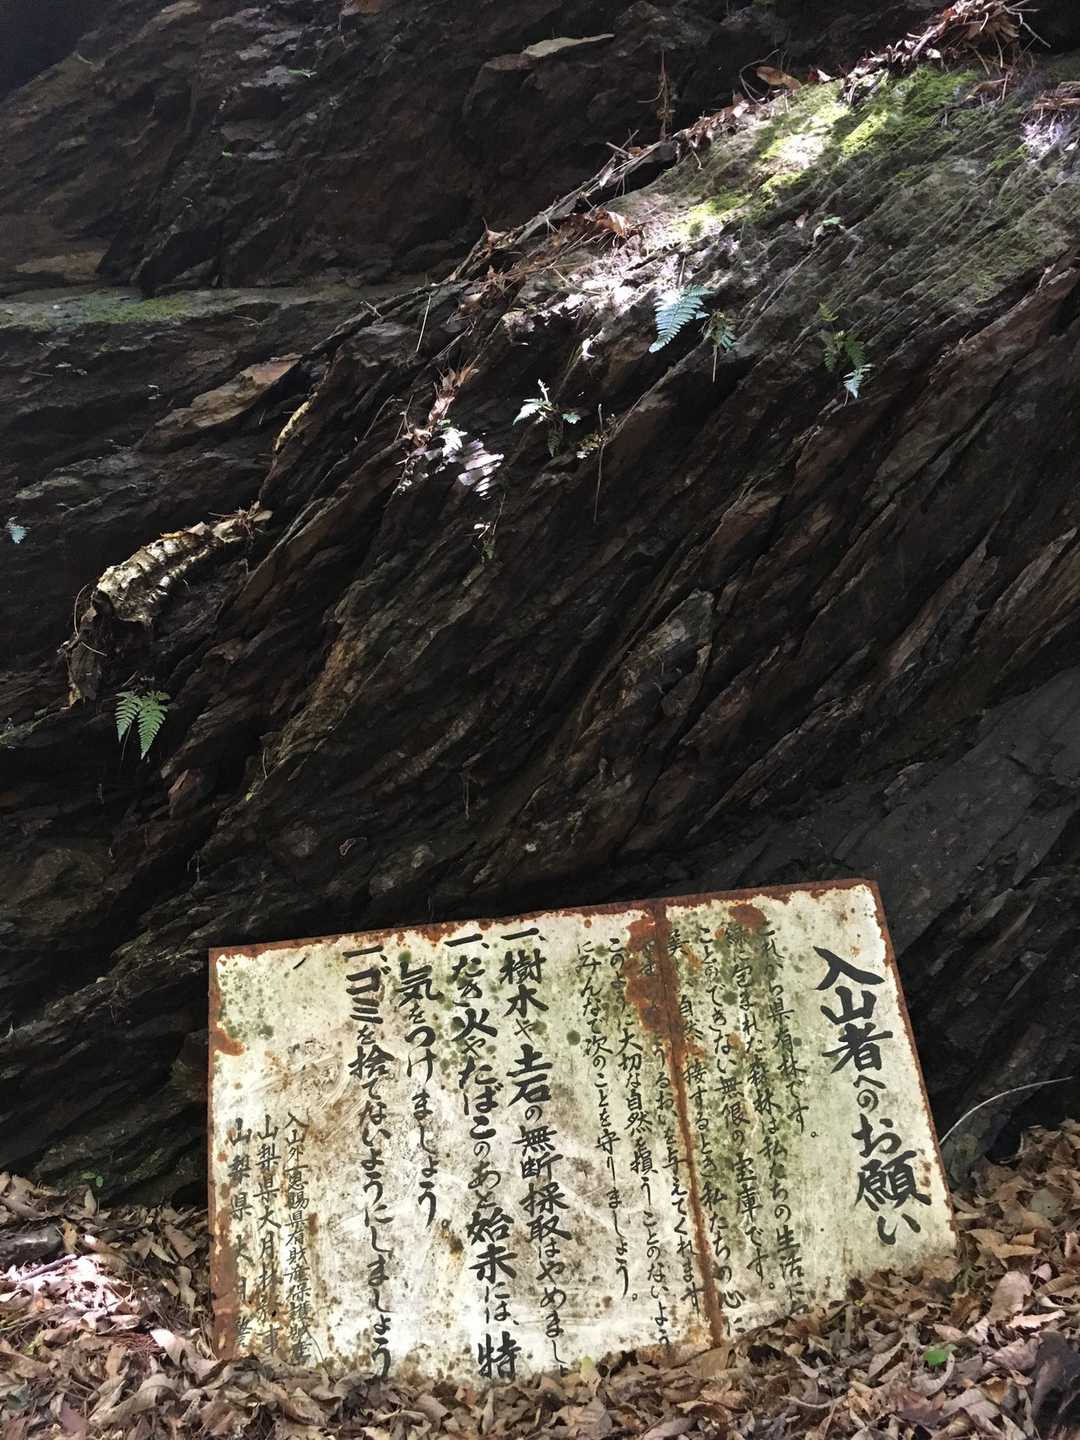 入山者へのお願い
これから県有林です。
緑に包まれた森林は私たちの生活に
ことのできない無限の宝庫です。
美 自然 接するとき私たちの心に
うるおいを与えてくれます
このような大切な自然を損うことのないよう
にみんなで次のことを守りましょう。
一、樹木や土石の無断採取はやめましょ
一、たき火やたばこのあと始末には、特
気をつけましょう。
一、ゴミを捨てないようにしましょう
入山外 恩賜県有財産保護
山梨県大月林 事
山梨県大月